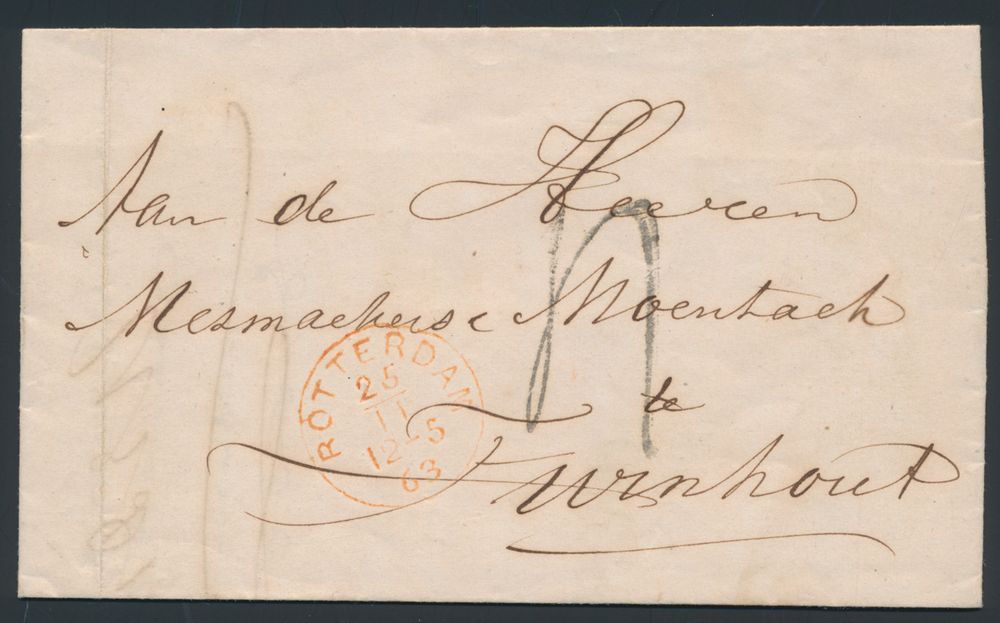 Aan de Heeren
Mesmaekers & Moentack
te
Turnhout
ROTTERDAM
25
11
12-5
63